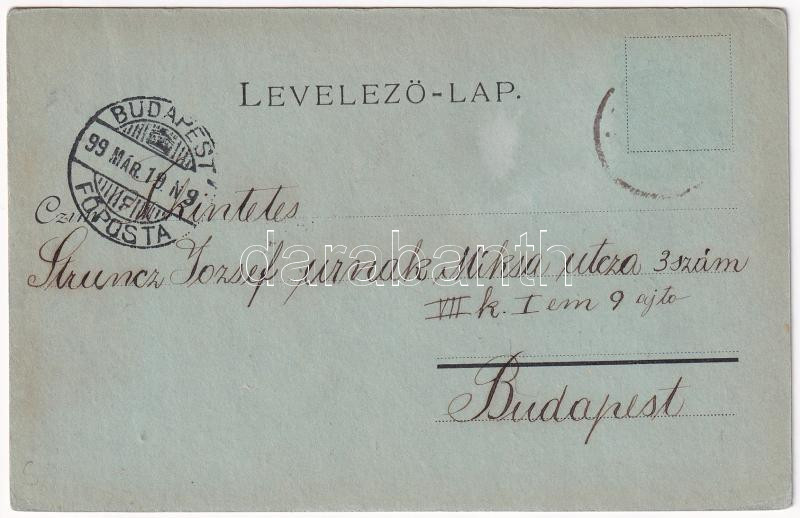 LEVELEZŐ-LAP.
BUDAPEST
99 MÁR. 19 N 9
FŐPOSTA
Czím
Tekintetes
Struncz Jozsef urnak Miksa utcza 3 szám
VII k. I em 9 ajto
Budapest
darabanth